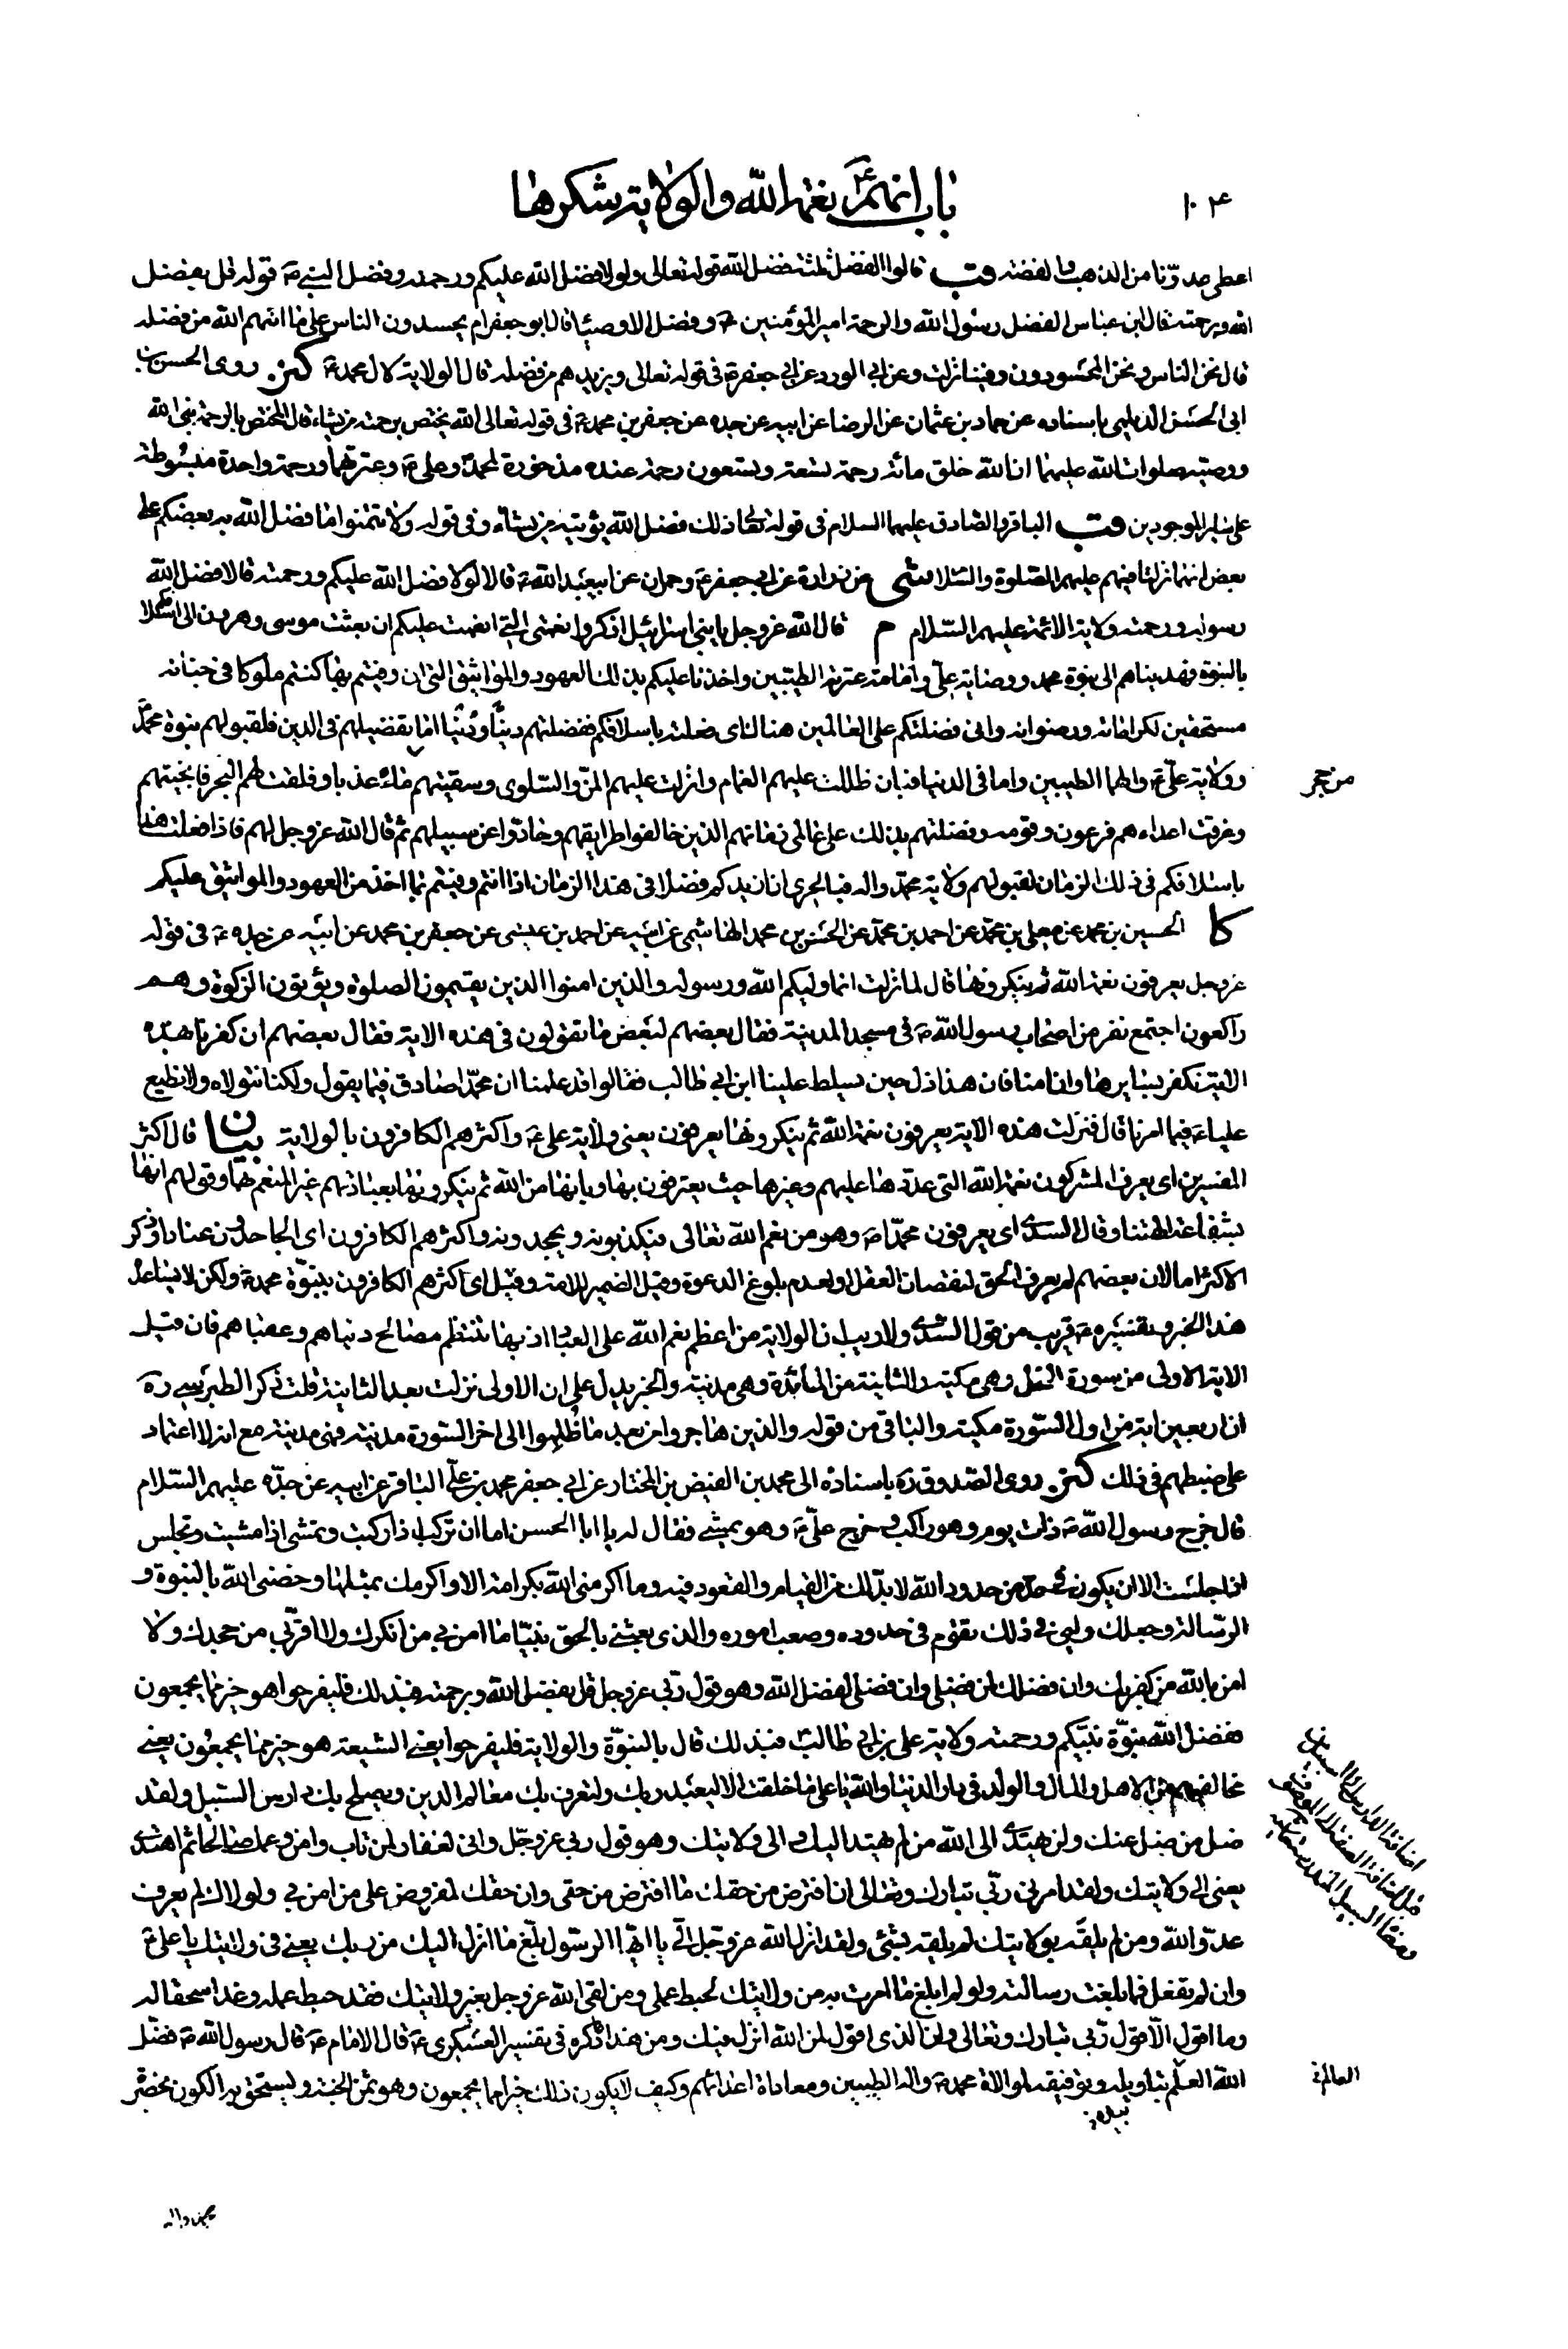 ۱۰۴
باب انهم ع نعمة الله والولاية شكرها
اعطى عدونا من الذهب والفضة قب قالوا الفضل ثلثة فضل الله قوله تعالى ولولا فضل الله عليكم ورحمته وفضل النبي ص قوله قل بفضل
الله وبرحمته قال ابن عباس الفضل رسول الله والرحمة امير المؤمنين ع وفضل الاوصياء قال ابو جعفر ع ام يحسدون الناس على ما اتيهم الله من فضله
قال نحن الناس ونحن المحسودون وفينا نزلت وعن ابي الورد عن ابي جعفر ع في قوله تعالى ويزيدهم من فضله قال الولاية لال محمد ع كنز روى الحسن بن
ابى الحسن الديلمي باسناده عن حماد بن عثمان عن الرضا عن ابيه عن جده عن جعفر بن محمد ع في قوله تعالى الله يختص برحمته من يشاء قال المختص بالرحمة نبي الله
ووصيه صلوات الله عليهما ان الله خلق مائة رحمة تسعة وتسعون رحمة عنده مذخورة لمحمد وعلي ع وعترتهما ورحمة واحدة مبسوطة
على سائر الموجودين قب الباقر والصادق عليهما السلام في قوله تعالى ذلك فضل الله يؤتيه من يشاء وفي قوله ولا تتمنوا ما فضل الله به بعضكم على
بعض انهما نزلتا فيهم عليهم الصلوة والسلام شى عن زرارة عن ابي جعفر ع وحمران عن ابيعبد الله ع قالا لولا فضل الله عليكم ورحمته قالا فضل الله
رسوله ورحمته ولاية الائمة عليهم السلام م قال الله عز وجل يا بني اسرائيل اذكروا نعمتي التي انعمت عليكم ان بعثت موسى وهرون الى اسلافكم
بالنبوة فهديناهم الى نبوة محمد ووصاية علي وامامة عترته الطيبين واخذنا عليكم بذلك العهود والمواثيق التي ان وفيتم بها كنتم ملوكا في جنانه
مستحقين لكراماته ورضوانه واني فضلتكم على العالمين هناك اى فعلته باسلافكم فضلتهم دينا ودنيا اما تفضيلهم في الدين فلقبولهم نبوة محمد
وولاية علي ع والهما الطيبين واما في الدنيا فبان ظللت عليهم الغمام وانزلت عليهم المن والسلوى وسقيتهم ماء عذبا وفلقت لهم البحر فانجيتهم
من حجر
وغرقت اعداءهم فرعون وقومه وفضلتهم بذلك على عالمي زمانهم الذين خالفوا طرايقهم وحادوا عن سبيلهم ثم قال الله عز وجل لهم فاذا فعلت هذا
باسلافكم في ذلك الزمان لقبولهم ولاية محمد واله فبالحري ان ازيدكم فضلا في هذا الزمان اذا انتم وفيتم بما اخذ من العهود والمواثيق عليكم
كا الحسين بن محمد عن معلى بن محمد عن احمد بن محمد عن الحسن بن محمد الهاشمي عن ابيه عن احمد بن عيسى عن جعفر بن محمد عن ابيه عن جده ع في قوله
عز وجل يعرفون نعمة الله ثم ينكرونها قال لما نزلت انما وليكم الله ورسوله والذين امنوا الذين يقيمون الصلوة ويؤتون الزكوة وهم
راكعون اجتمع نفر من اصحاب رسول الله ص في مسجد المدينة فقال بعضهم لبعض ما تقولون في هذه الاية فقال بعضهم ان كفرنا بهذه
الاية نكفر بسايرها وان امنا فان هذا ذل حين يسلط علينا ابن ابي طالب فقالوا قد علمنا ان محمدا صادق فيما يقول ولكنا نتولاه ولا نطيع
عليا ع فيما امرنا قال فنزلت هذه الاية يعرفون نعمة الله ثم ينكرونها يعرفون يعني ولاية علي ع واكثرهم الكافرون بالولاية بيان قال اكثر
المفسرين اى يعرف المشركون نعمة الله التي عددها عليهم وغيرها حيث يعترفون بها وبانها من الله ثم ينكرونها بعبادتهم غير المنعم بها وقولهم انها
بشفاعة الهتنا وقال السدى اى يعرفون محمدا ص وهو من نعم الله تعالى فيكذبونه ويجحدونه واكثرهم الكافرون اى الجاحدون عنادا وذكر
الاكثر اما لان بعضهم لم يعرف الحق لنقصان العقل او لعدم بلوغ الدعوة وقيل الضمير للامة وقيل اى اكثرهم الكافرون بنبوة محمد ص ولكن لا يساعد
هذا الخبر وتفسيره ع قريب من قول السدى ولا ريب ان الولاية من اعظم نعم الله على العباد اذ بها تنتظم مصالح دنياهم وعقباهم فان قيل
الاية الاولى من سورة النحل وهي مكية والثانية من المائدة وهي مدنية والخبر يدل على ان الاولى نزلت بعد الثانية قلت ذكر الطبرسي ره
ان اربعين اية من اول السورة مكية والباقي من قوله والذين هاجروا من بعد ما ظلموا الى اخر السورة مدنية فهي مدنية مع انه لا اعتماد
على ضبطهم في ذلك كنز روى الصدوق ره باسناده الى محمد بن الفيض بن المختار عن ابي جعفر محمد بن علي الباقر عن ابيه عن جده عليهم السلام
قال خرج رسول الله ص ذات يوم وهو راكب وخرج علي ع وهو يمشي فقال له يا ابا الحسن اما ان تركب اذا ركبت وتمشى اذا مشيت وتجلس
اذا جلست الا ان يكون في حد من حدود الله لا بد لك من القيام والقعود فيه وما اكرمني الله بكرامة الا واكرمك بمثلها وخصني الله بالنبوة و
الرسالة وجعلك وليي في ذلك تقوم في حدوده وصعب اموره والذى بعثني بالحق نبيا ما امن بي من انكرك ولا اقر بي من جحدك ولا
امن بالله من كفر بك وان فضلك لمن فضلي وان فضلي لفضل الله وهو قول ربي عز وجل قل بفضل الله وبرحمته فبذلك فليفرحوا هو خير مما يجمعون
ففضل الله نبوة نبيكم ورحمته ولاية علي بن ابي طالب فبذلك قال بالنبوة والولاية فليفرحوا يعني الشيعة هو خير مما يجمعون يعني
مخالفيهم من الاهل والمال والولد في دار الدنيا والله يا علي ما خلقت الا ليعبد ربك وليعرف بك معالم الدين ويصلح بك دارس السبيل ولقد
ضل من ضل عنك ولن يهتدى الى الله من لم يهتد اليك والى ولايتك وهو قول ربي عز وجل واني لغفار لمن تاب وامن وعمل صالحا ثم اهتدى
يعني الى ولايتك ولقد امرني ربي تبارك وتعالى ان افترض من حقك ما افترض من حقي وان حقك لمفروض على من امن بي ولولاك لم يعرف
عدو الله ومن لم يلقه بولايتك لم يلقه بشئ ولقد انزل الله عز وجل الي يا ايها الرسول بلغ ما انزل اليك من ربك يعني في ولايتك يا علي ع
وان لم تفعل فما بلغت رسالته ولو لم ابلغ ما امرت به من ولايتك لحبط عملي ومن لقى الله عز وجل بغير ولايتك فقد حبط عمله وغدا سحقا له
وما اقول الا قول ربي تبارك وتعالى وان الذى اقول لمن الله انزل فيك ومن هذا ذكره في تفسير العسكرى ع قال الامام ع قال رسول الله ص فضل
الله العلم بتاويله وتوفيقه لموالاة محمد ص واله الطيبين ومعاداة اعدائهم وكيف لا يكون ذلك خيرا مما يجمعون وهو ثمن الجنة ويستحق به الكون بحضرة
العالم